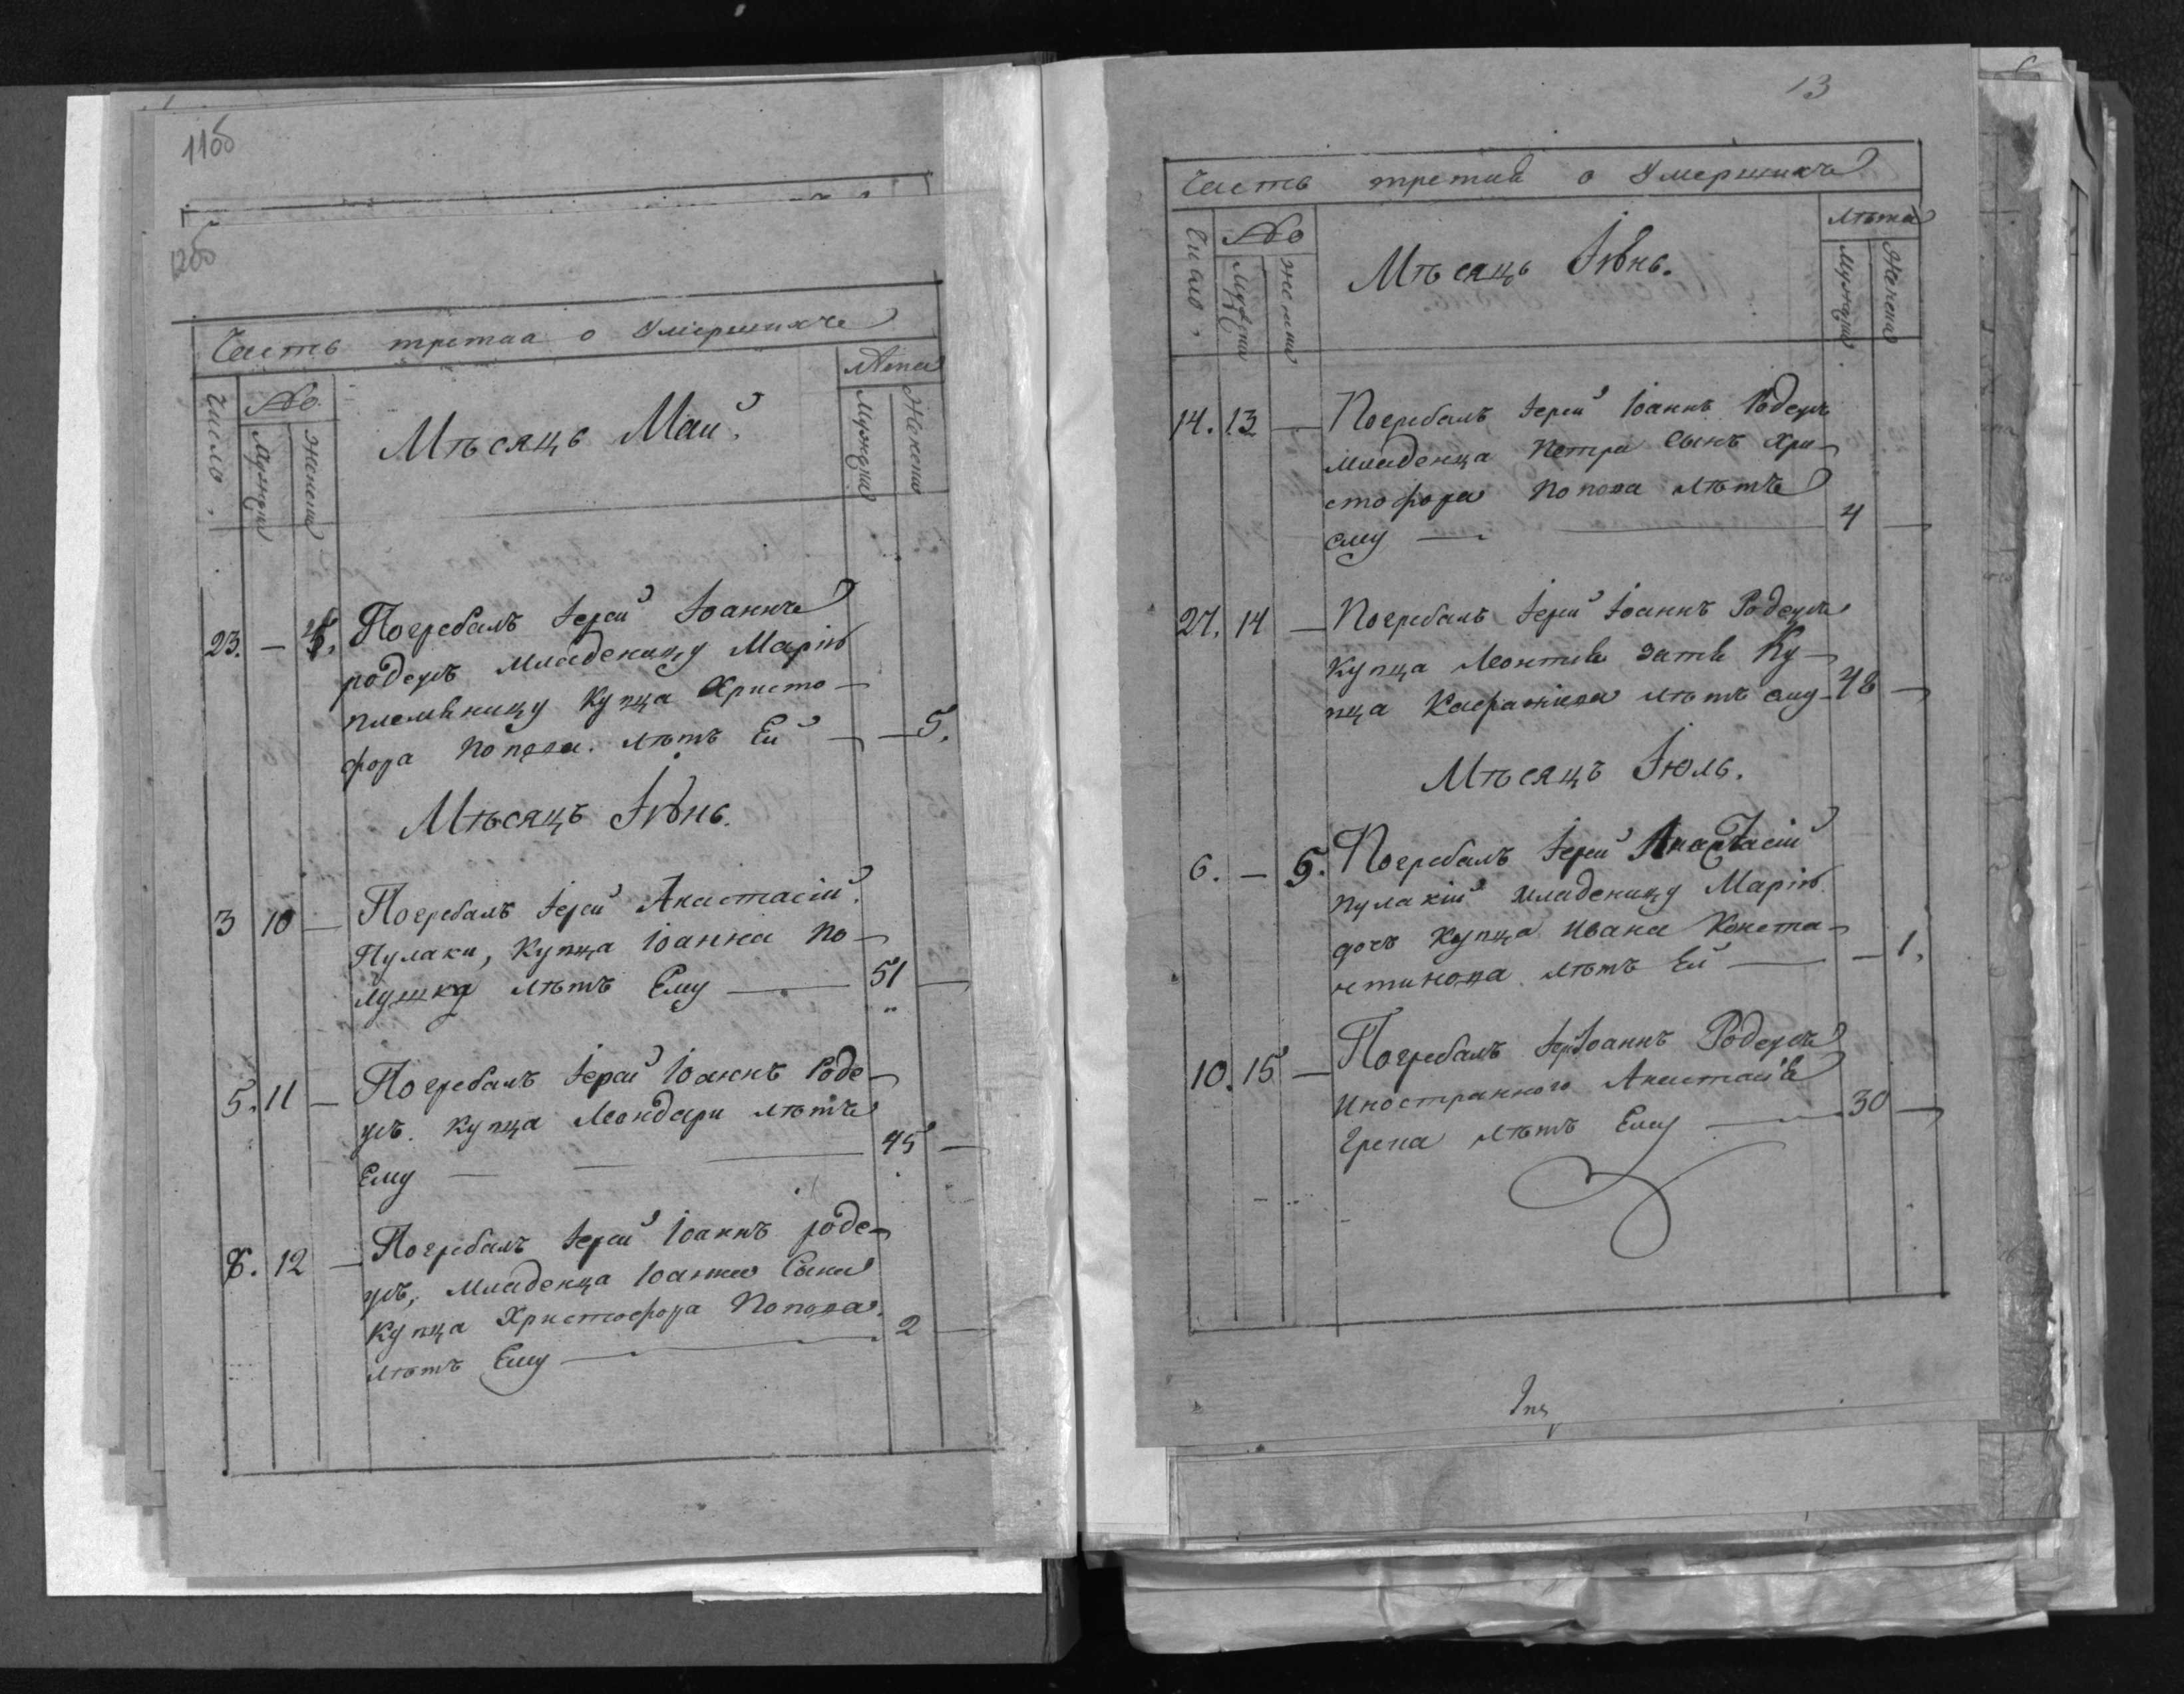 11об
12об
Часть третiа о Умершихъ
Число
№
Мужеска
Женска
Мѣсяцъ Май.
Лѣта
Мужеска
Женска
23. — 4. Погребалъ Iерей Iоаннъ
родецъ младеницу Марiю
племѣницу Купца Христо-
фора Попова. лѣтъ Ей — — 5.
Мѣсяцъ Iюнь.
3 10 — Погребалъ Iерей Анастасiй
Пулаки, Купца Iоанна По-
лушка лѣтъ Ему — 51 —
5. 11 — Погребалъ Iерей Iоаннъ Роде-
цъ. Купца Леондари лѣтъ
Ему — 45 —
8. 12 — Погребалъ Iерей Iоаннъ роде-
цъ, Младенца Iоанна Сына
Купца Христофора Попова.
лѣтъ Ему — 2 —
13
Часть третiа о Умершихъ
Число
№
Мужеска
Женска
Мѣсяцъ Iюнь.
Лѣта
Мужеска
Женска
14. 13 — Погребалъ Iерей Iоаннъ Родецъ
Младенца Петра Сынъ Хри-
стофора Попова лѣтъ
Ему — 4 —
27. 14 — Погребалъ Iерей Iоаннъ Родецъ
Купца Леонтiя Затя Ку-
пца лѣтъ ему — 48 —
Мѣсяцъ Iюль.
6. — 5. Погребалъ Iерей Анастасiй
Пулакiй младеницу Марiю
дочь Купца Ивана Конста-
нтинова лѣтъ Ей — — 1.
10. 15 — Погребалъ Iер Iоаннъ Родецъ
Иностранного Анастасiя
Грека лѣтъ Ему — 30 —